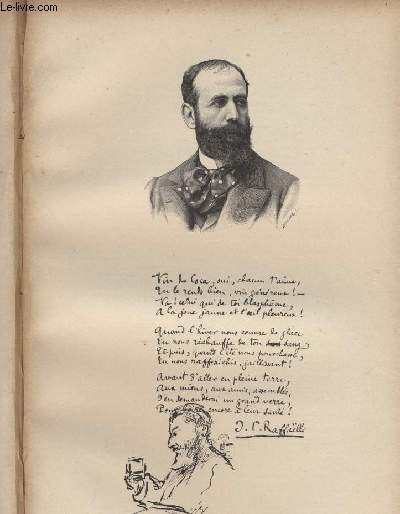 Le-livre.com
Vin de Coca, oui, chacun t'aime,
Tu le rends bien, vin généreux ! —
Va ! celui qui de toi blasphème,
A la joue jaune et l'œil pleureux !
Quand l'hiver nous couvre de glace
Tu nous réchauffe de ton sang,
Et puis, quand l'été nous pourchasse,
Tu nous rafraîchis, jaillissant !
Avant d'aller en pleine terre,
Aux miens, aux amis, assemblés,
J'en demanderai un grand verre,
Pour encore à leur santé !
J. F. Raffaëlli